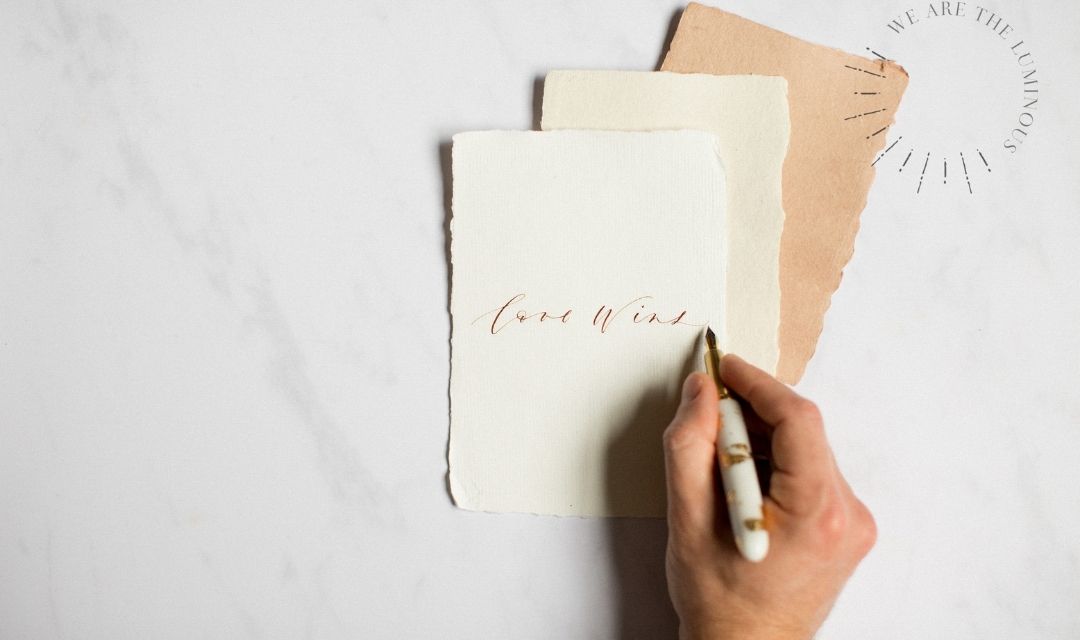 WE ARE THE LUMINOUS
Love Wins